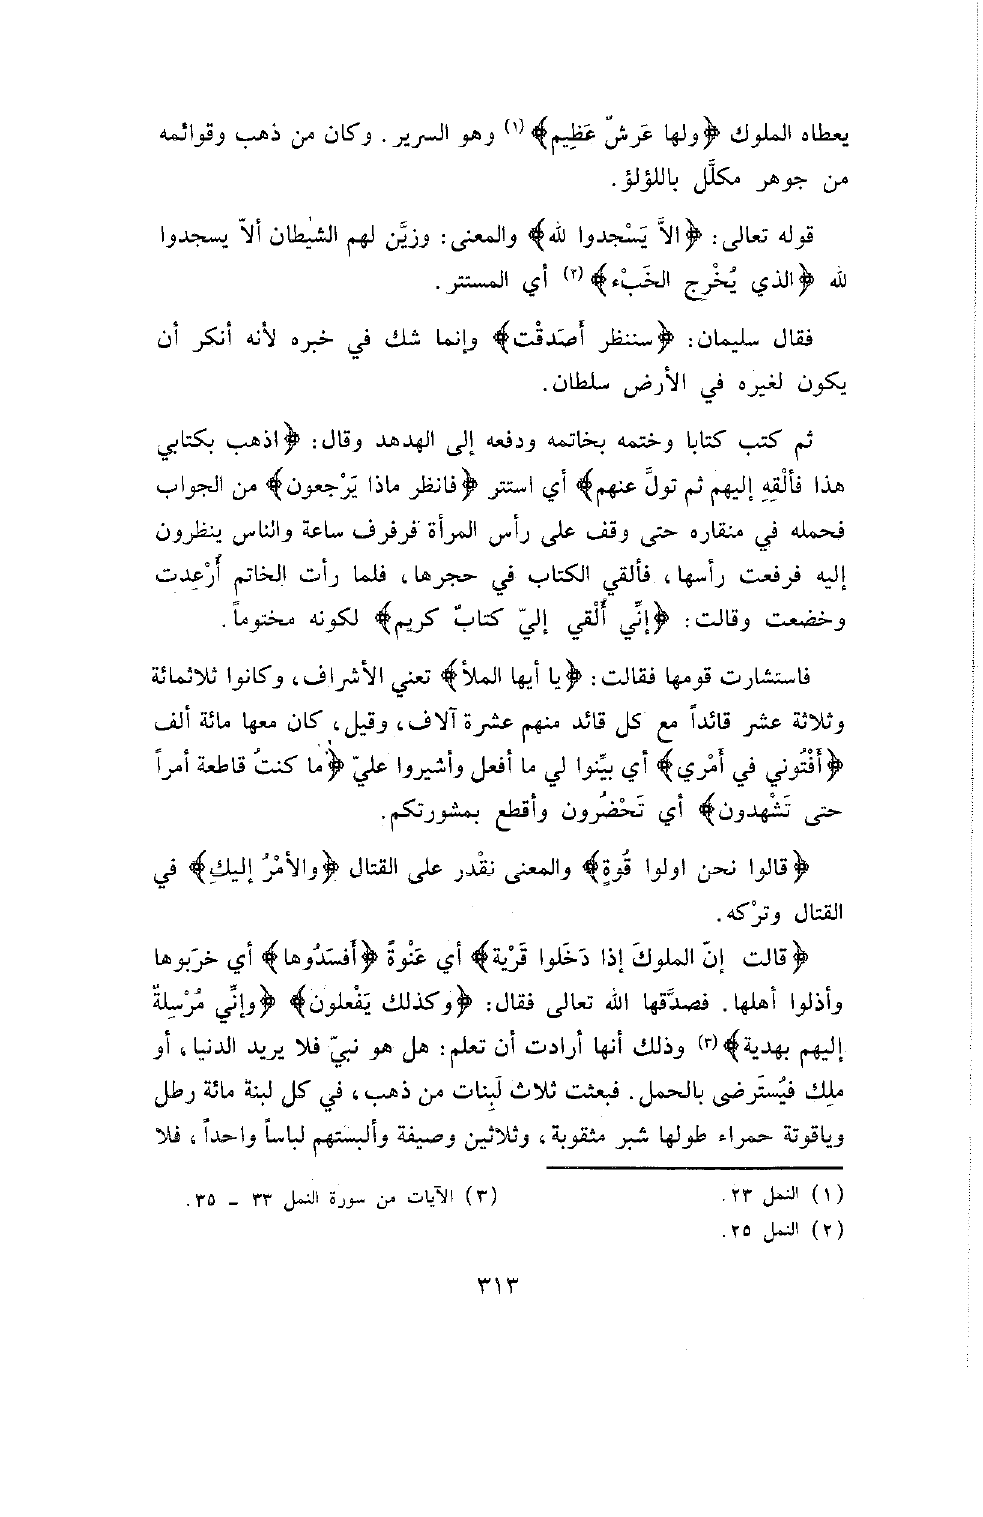 يعطاه الملوك ﴿ولها عَرشٌ عَظِيم﴾ (١) وهو السرير. وكان من ذهب وقوائمه
من جوهر مكلَّل باللؤلؤ.
قوله تعالى: ﴿الاَّ يَسْجدوا لله﴾ والمعنى: وزيَّن لهم الشيطان ألاّ يسجدوا
لله ﴿الذي يُخْرج الخَبْء﴾ (٢) أي المستتر.
فقال سليمان: ﴿سننظر أَصَدقْت﴾ وإنما شك في خبره لأنه أنكر أن
يكون لغيره في الأرض سلطان.
ثم كتب كتابا وختمه بخاتمه ودفعه إلى الهدهد وقال: ﴿اذهب بكتابي
هذا فألْقِهِ إليهم ثم تولَّ عنهم﴾ أي استتر ﴿فانظر ماذا يَرْجعون﴾ من الجواب
فحمله في منقاره حتى وقف على رأس المرأة فرفرف ساعة والناس ينظرون
إليه فرفعت رأسها، فألقي الكتاب في حجرها، فلما رأت الخاتم أُرْعِدت
وخضعت وقالت: ﴿إنِّي أُلْقي إليّ كتابٌ كريم﴾ لكونه مختوماً.
فاستشارت قومها فقالت: ﴿يا أيها الملأ﴾ تعني الأشراف، وكانوا ثلاثمائة
وثلاثة عشر قائداً مع كل قائد منهم عشرة آلاف، وقيل، كان معها مائة ألف
﴿أَفْتُوني في أَمْري﴾ أي بيِّنوا لي ما أفعل وأشيروا عليّ ﴿ما كنتُ قاطعة أمراً
حتى تَشْهدون﴾ أي تَحْضُرون وأقطع بمشورتكم.
﴿قالوا نحن اولوا قُوةٍ﴾ والمعنى نقْدر على القتال ﴿والأمْرُ إليكِ﴾ في
القتال وترْكه.
﴿قالت إنّ الملوكَ إذا دَخَلوا قَرْية﴾ أي عَنْوةً ﴿أَفسَدُوها﴾ أي خرَبوها
وأذلوا أهلها. فصدَّقها الله تعالى فقال: ﴿وكذلك يَفْعلون﴾ ﴿وإنِّي مُرْسِلةٌ
إليهم بهدية﴾ (٣) وذلك أنها أرادت أن تعلم: هل هو نبيّ فلا يريد الدنيا، أو
ملِك فيُستَرضى بالحمل. فبعثت ثلاث لَبِنات من ذهب، في كل لبنة مائة رطل
وياقوتة حمراء طولها شبر مثقوبة، وثلاثين وصيفة وألبستهم لباساً واحداً، فلا
(١) النمل ٢٣.
(٢) النمل ٢٥.
(٣) الآيات من سورة النمل ٣٣ - ٣٥.
٣١٣